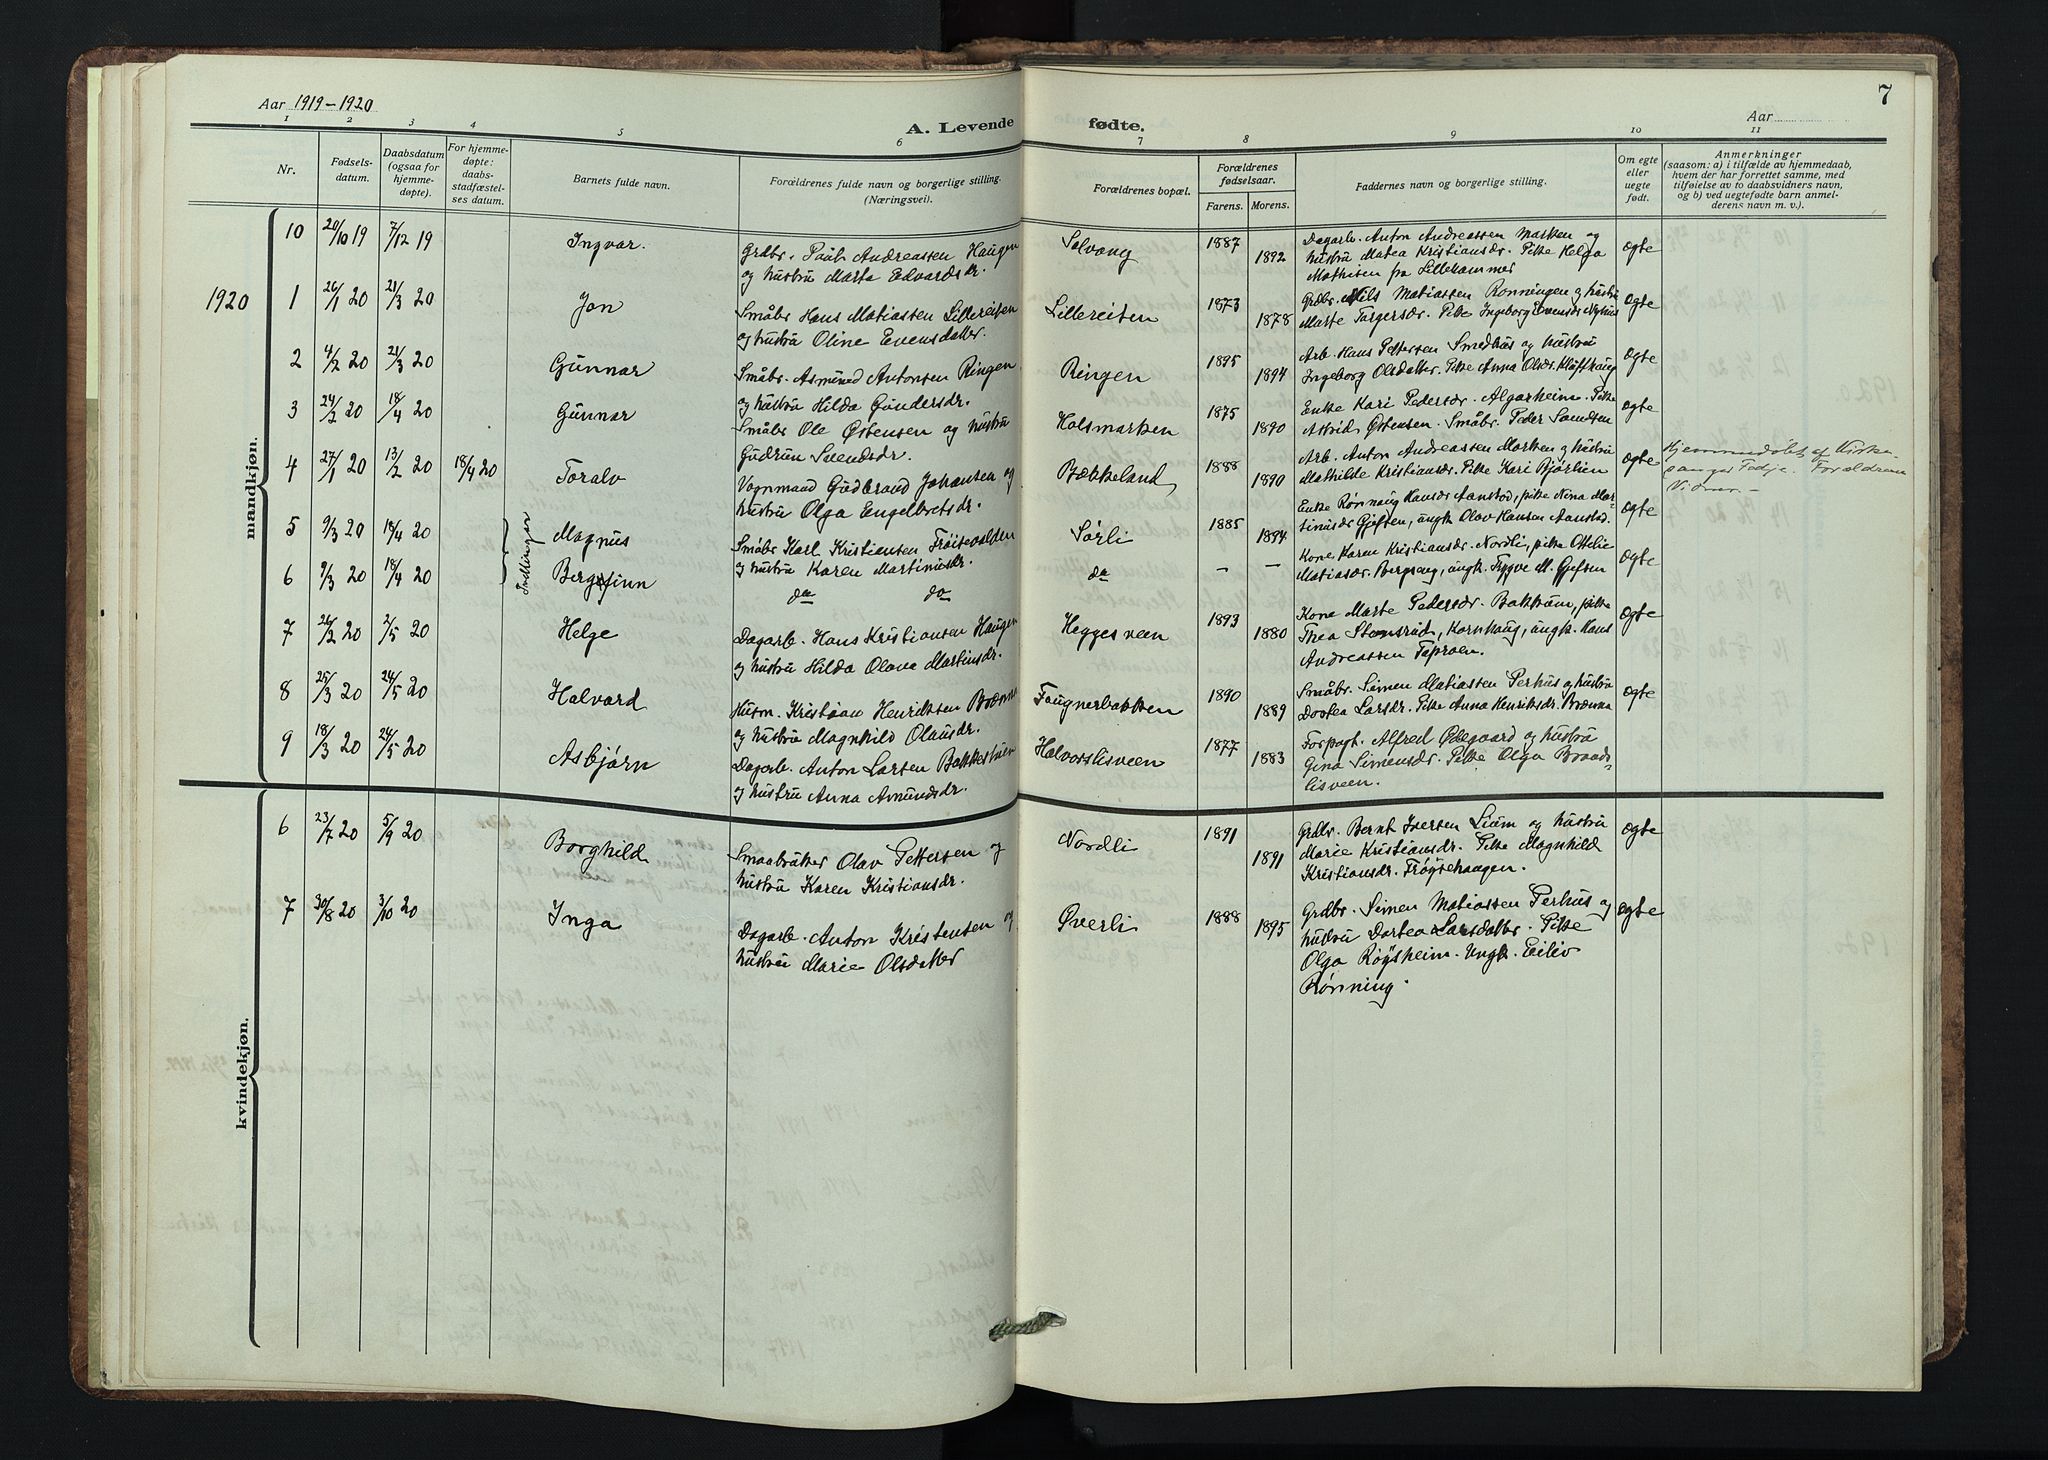 Aar 1919-1920
7
Aar
A. Levende fødte.
1 2 3 4 5 6 7 8 9 10 11
Nr.
Fødsels-
datum.
Daabsdatum
(ogsaa for
hjemme-
døpte).
For hjemme-
døpte:
daabs-
stadfæstel-
ses datum.
Barnets fulde navn.
Forældrenes fulde navn og borgerlige stilling.
(Næringsvei).
Forældrenes bopæl.
Forældrenes
fødselsaar.
Farens. Morens.
Faddernes navn og borgerlige stilling.
Om egte
eller
uegte
født.
Anmerkninger
(saasom: a) i tilfælde av hjemmedaab,
hvem der har forrettet samme, med
tilføielse av to daabsvidners navn,
og b) ved uegtefødte barn anmel-
derens navn m. v.).
mandkjøn.
10 20/10 19 7/12 19 Ingvar.
Grdbr. Paul Andreassen Haugen
og hustru Marta Edvardsdr.
Solvang 1887 1892
Dagarb. Anton Andreassen Marken og
hustru Matea Kristiansdr. Pike Helga
Mathisen fra Lillehammer
egte
1920
1 26/1 20 21/3 20 Jon
Småbr Hans Matiassen Lillereiten
og hustru Oline Evensdatter.
Lillereiten 1873 1878
Grdbr. Nils Matiassen Rønningen og hustru
Marte Torgersdr. Pike Ingeborg Evensdr Nyhus
egte
2 4/2 20 21/3 20 Gunnar
Småbr. Asmund Antonsen Ringen
og hustru Hilda Gundersdr.
Ringen 1895 1894
Arb. Hans Pettersen Smedhus og hustru
Ingeborg Olsdatter. Pike Anna Olsdr. Kløffhaug
egte
3 24/2 20 18/4 20 Gunnar
Småbr Ole Østensen og hustru
Gudrun Svendsdr.
Holsmarken 1875 1890
Enke Kari Pedersdr. Algarheim. Pike
Astrid Østensen. Småbr. Peder Samdsen
egte
4 27/1 20 13/2 20 18/4 20 Toralv
Vognmand Gudbrand Johansen og
hustru Olga Engelbretsdr.
Bækkeland 1888 1890
Arb. Anton Andreassen Marken og hustru
Mathilde Kristiansdr. Pike Kari Bjørlien
egte
Hjemmedøbt af Kirke-
sanger Fedje. Forældrene
Vidner.
Tvillinger
5 9/3 20 18/4 20 Magnus
Småbr Karl Kristiansen Frøisevolden
og hustru Karen Martinusdr.
Sørli 1885 1894
Enke Rønnaug Hansdr Aanstad, pike Nina Mar-
tinusdr Gjefsen, ungk Olav Hansen Aanstad.
egte
6 9/3 20 18/4 20 Bergfinn
do do
do - -
Kone Karen Kristiansdr. Nordli, pike Ottilie
Matiasdr. Bergseng, ungk. Trygve M. Gjefsen
egte
7 26/2 20 2/5 20 Helge
Dagarb. Hans Kristiansen Haugen
og hustru Hilda Olava Martinsdr.
Heggesveen 1893 1880
Kona Marte Pedersdr. Bakkum, pike
Thea Stensrud, Kornhaug, ungk. Hans
Andreassen Taproen.
egte
8 25/3 20 24/5 20 Halvard
Husm. Kristian Henriksen Brænna
og hustru Magnhild Olausdr.
Faugnerbakken 1890 1889
Småbr. Simen Matiassen Perhus og hustru
Dortea Larsdr. Pike Anna Henriksdr. Brænna
egte
9 18/3 20 24/5 20 Asbjørn
Dagarb. Anton Larsen Bakkestuen
og hustru Anna Amundsdr.
Halvorslisveen 1877 1883
Forpagt. Alfred Ødegaard og hustru
Gina Simensdr. Pike Olga Braads-
lisveen.
egte
kvindekjøn.
6 23/7 20 5/9 20 Borghild
Smaabruker Olav Pettersen og
hustru Karen Kristiansdr.
Nordli 1891 1891
Grdbr. Bernt Iversen Lium og hustru
Marie Kristiansdr. Pike Magnhild
Kristiansdr. Frøysehaugen.
egte
7 30/8 20 3/10 20 Inga
Dagarb. Anton Kristensen og
hustru Marie Olsdatter
Øverli 1888 1895
Grdbr. Simen Matiassen Perhus og
hustru Dortea Larsdatter. Pike
Olga Røysheim. Ungk. Eiliv
Rønning.
egte